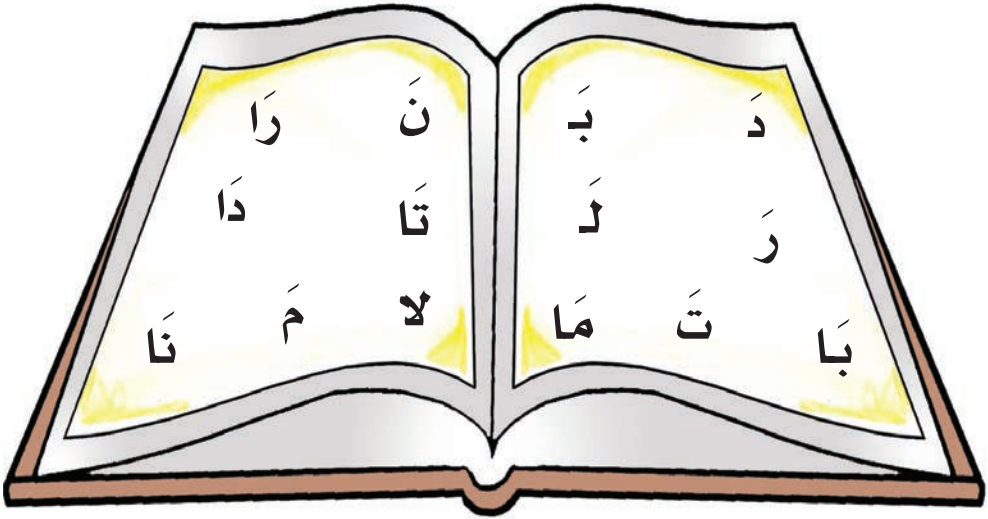 دَ بَـ
رَ لَـ
بَا تَ مَا
نَ رَا
تَا دَا
لا مَ نَا